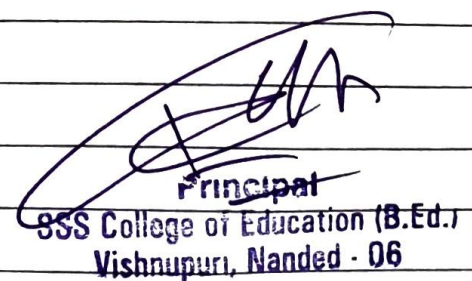 Principal
SSS College of Education (B.Ed.)
Vishnupuri, Nanded - 06